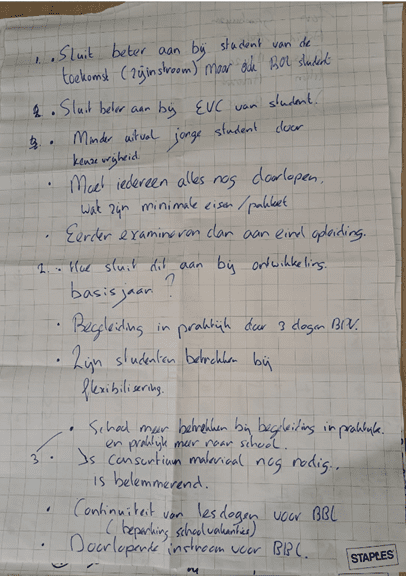 1. . Sluit beter aan bij student van de
toekomst (zijinstroom) maar ook BOL student
2. . Sluit beter aan bij EVC van student.
3. . Minder uitval jonge student door
keuzevrijheid.
. Moet iedereen alles nog doorlopen.
wat zijn minimale eisen/pakket
. Eerder examineren dan aan eind opleiding.
2. . Hoe sluit dit aan bij ontwikkeling.
basisjaar?
. Begeleiding in praktijk door 3 dagen BPV.
. Zijn studenten betrokken bij
flexibilisering.
. School meer betrekken bij begeleiding in praktijk.
en praktijk meer naar school.
3. . Is consortium materiaal nog nodig..
is belemmerend.
. Continuiteit van lesdagen voor BBL
(beperking schoolvakanties)
. Doorlopende instroom voor BBL.
STAPLES